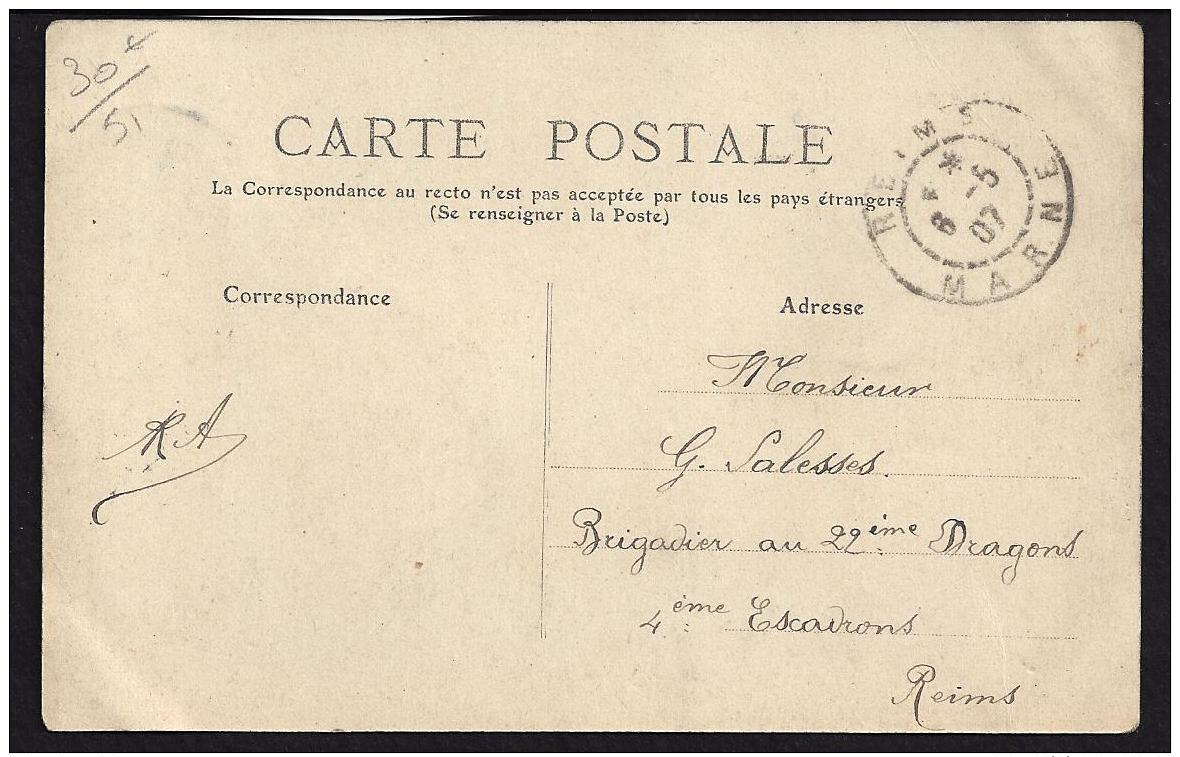 30 x
51
CARTE POSTALE
La Correspondance au recto n'est pas acceptée par tous les pays étrangers
(Se renseigner à la Poste)
REIMS
* 8 -5
07
MARNE
Correspondance
Adresse
Monsieur
G. Salesses.
Brigadier au 22ème Dragons
4ème Escadrons
Reims